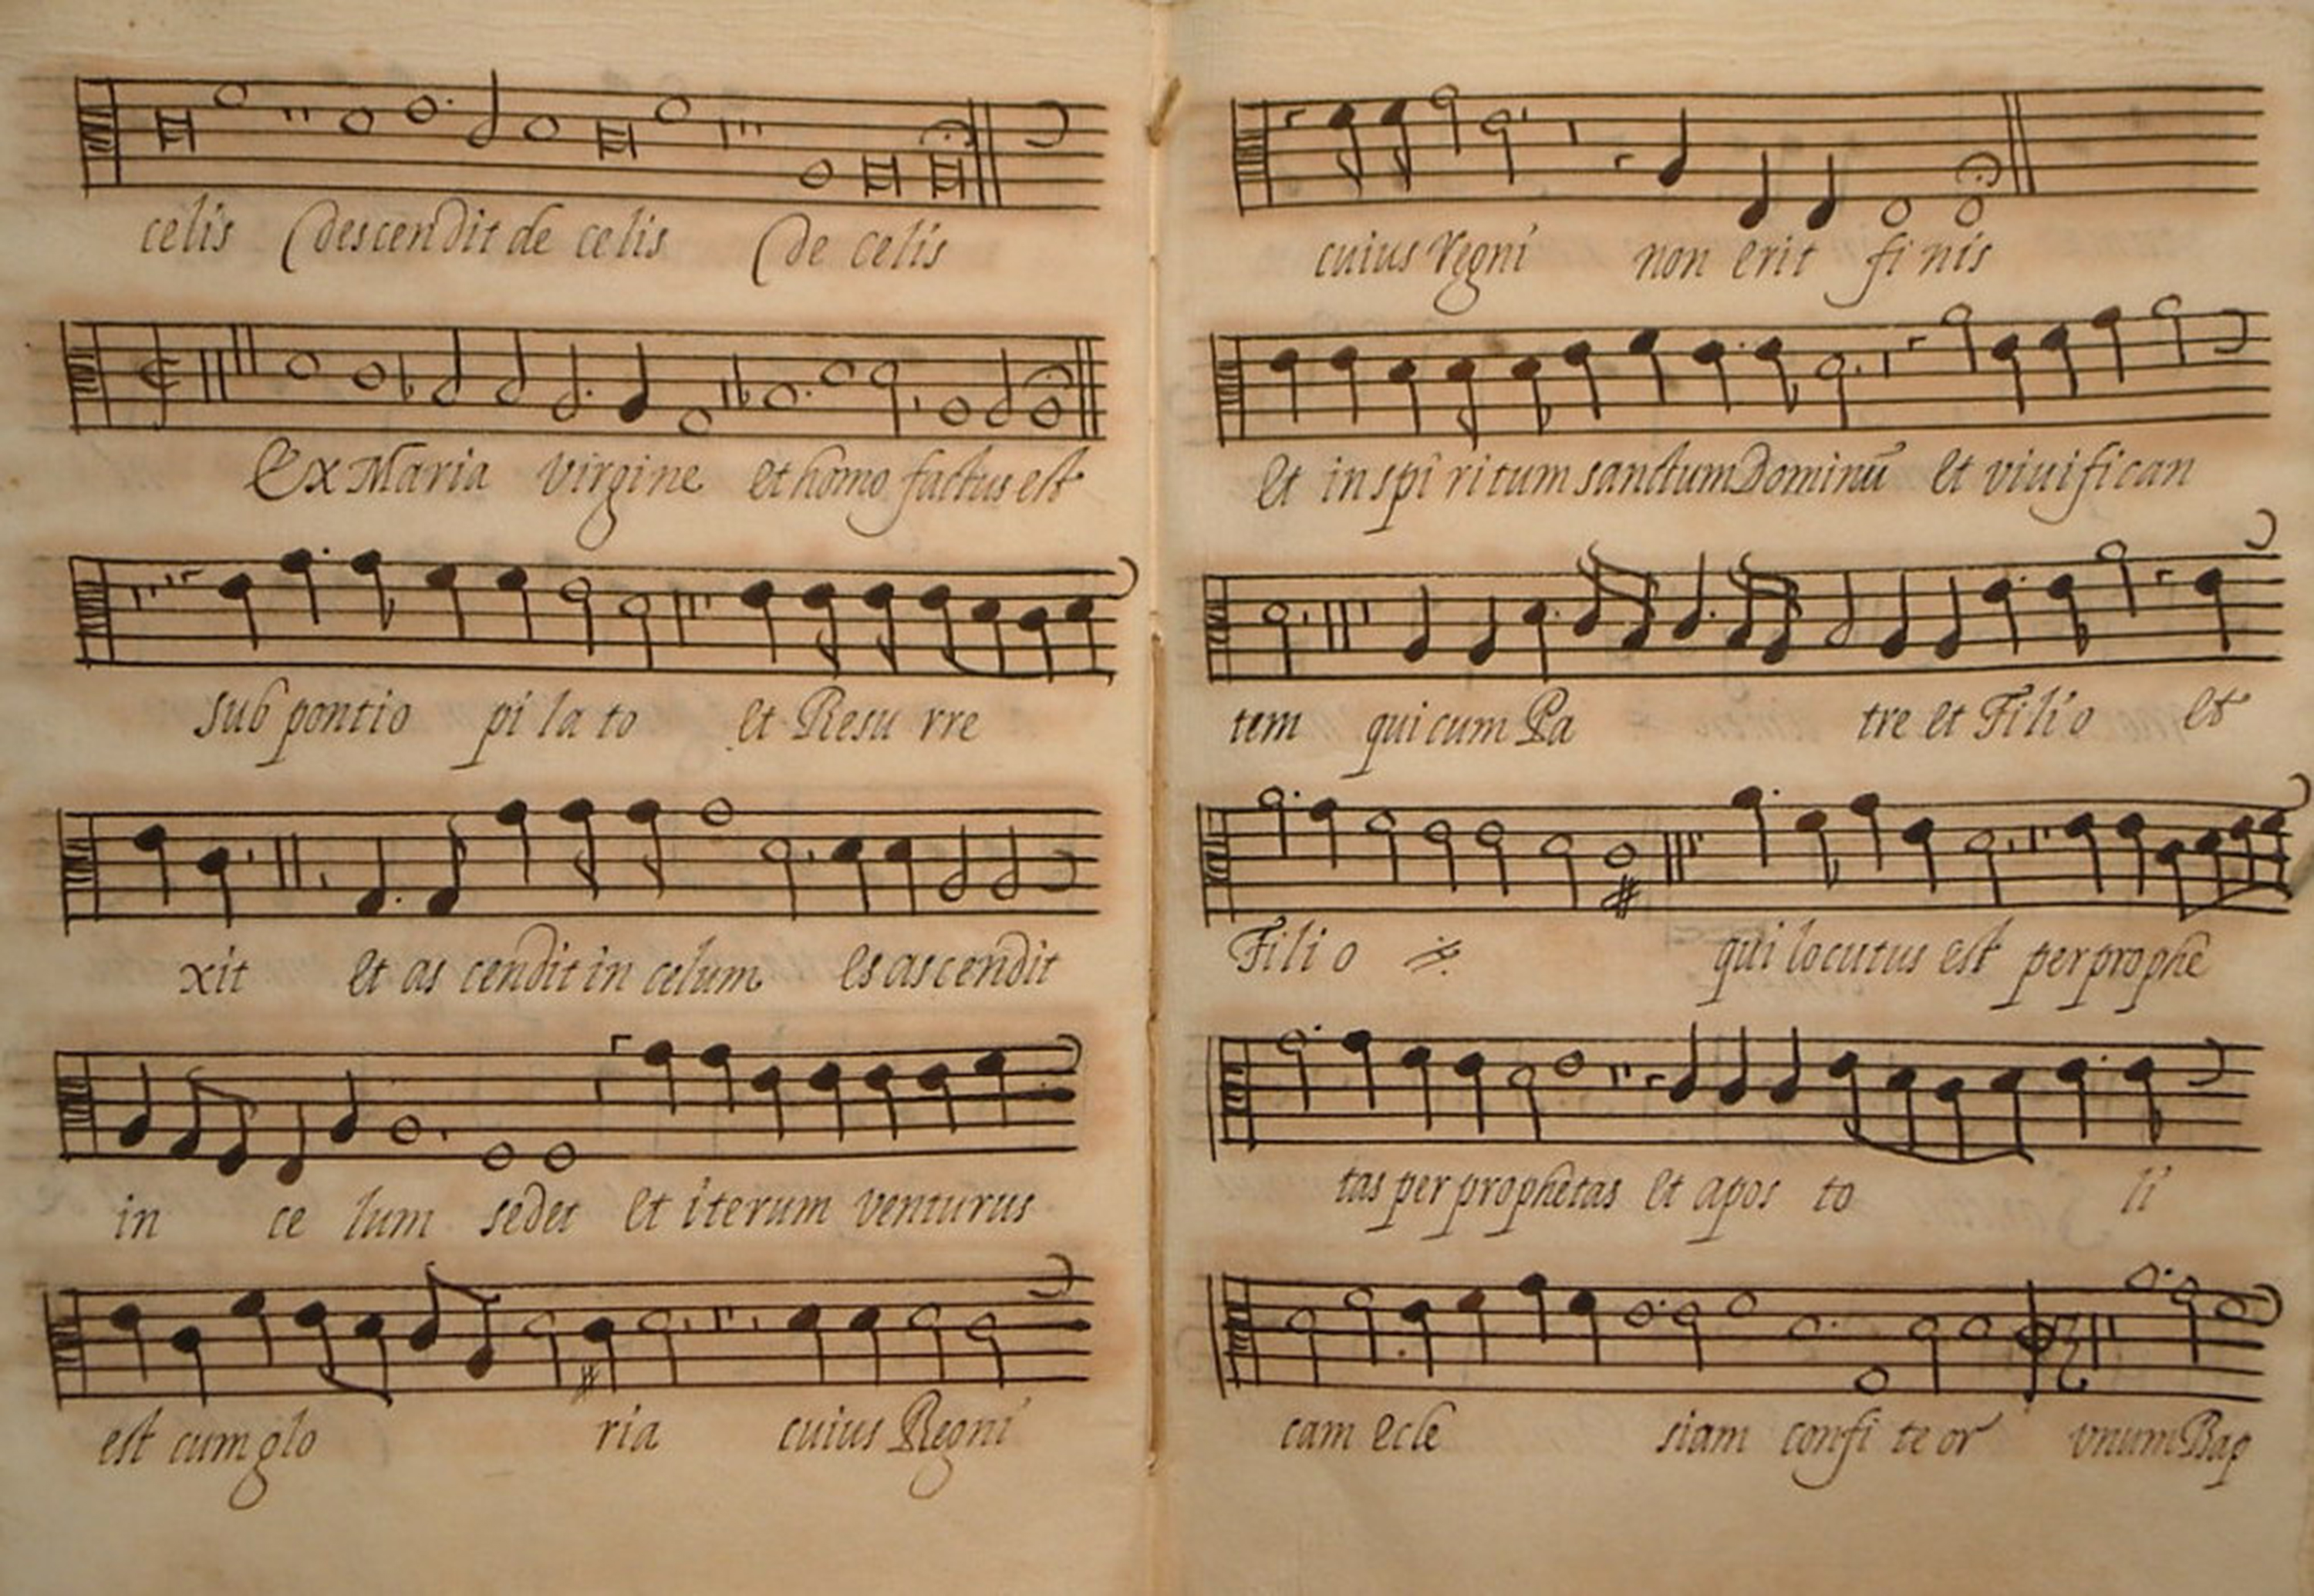 celis descendit de celis de celis
Ex Maria virgine et homo factus est
sub pontio pi la to et Resu rre
xit et as cendit in celum es ascendit
in ce lum sedet et iterum venturus
est cum glo ria cuius Regni
cuius Regni non erit fi nis
et in spi ritum sanctum Dominū et viuifican
tem qui cum Pa tre et Filio et
Fili o qui locutus est per prophe
tas per prophetas et apos to li
cam ecle siam confi te or vnum Bap